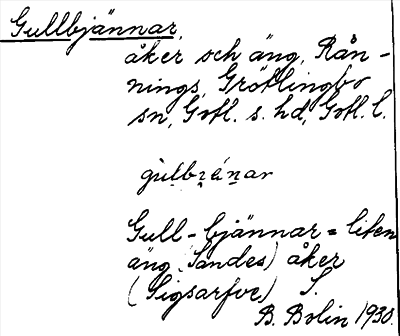 Gullbjännar,
åker och äng, Rån-
nings, Grötlingbo
sn, Gotl. s. hd, Gotl. l.
Gull-bjännar = liten
äng (Sandes) åker
(Sigsarfve) S.
B. Bolin 1930.